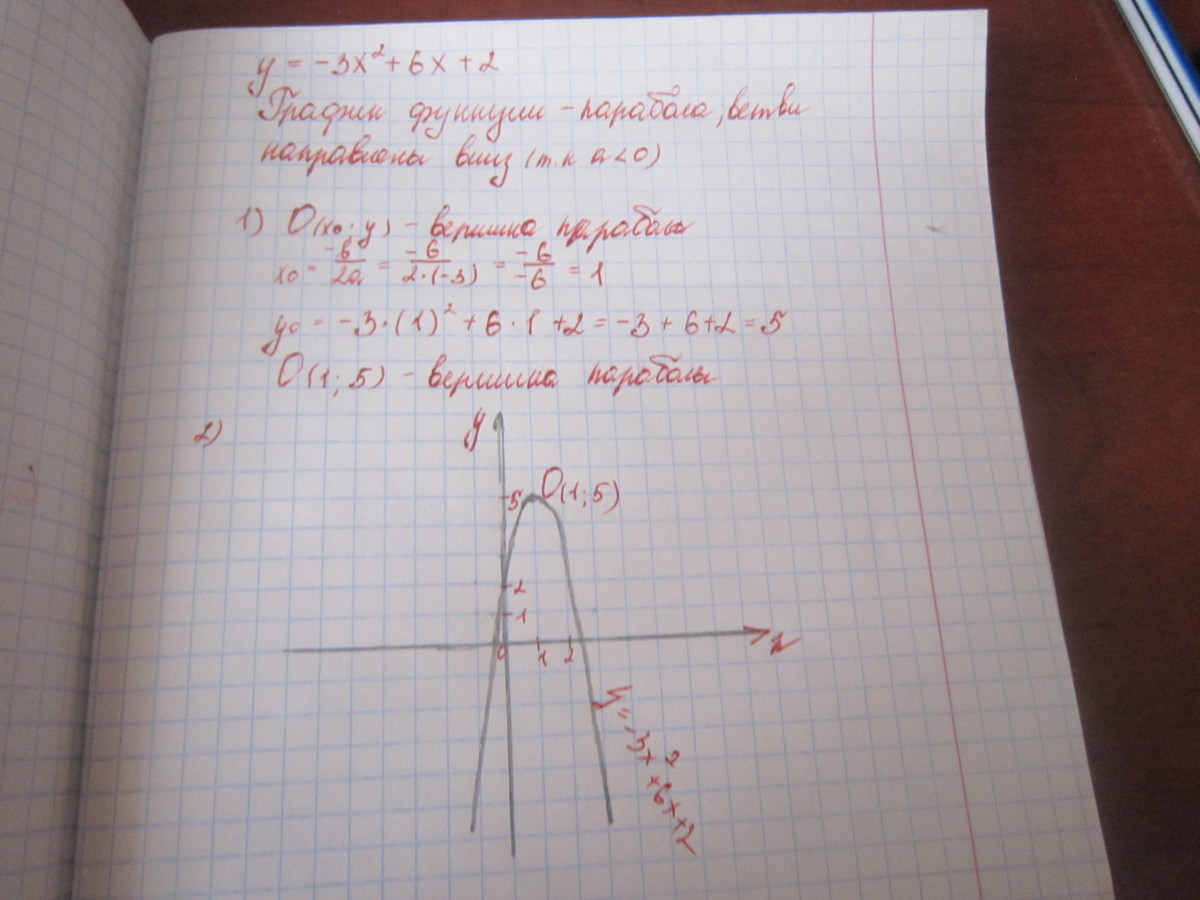 y = -3x² + 6x + 2
График функции - парабола, ветви
направлены вниз (т.к a < 0)
1) O(x₀; y) - вершина параболы
x₀ = -b/2a = -6/2·(-3) = -6/-6 = 1
y₀ = -3·(1)² + 6·1 + 2 = -3 + 6 + 2 = 5
O(1; 5) - вершина параболы
2)
y
5 O(1; 5)
2
1
0 1 2 x
y = -3x² + 6x + 2